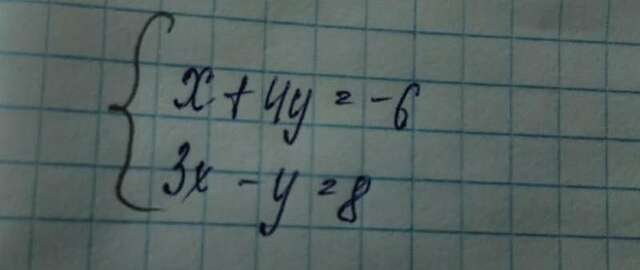 x + 4y = -6
3x - y = 8